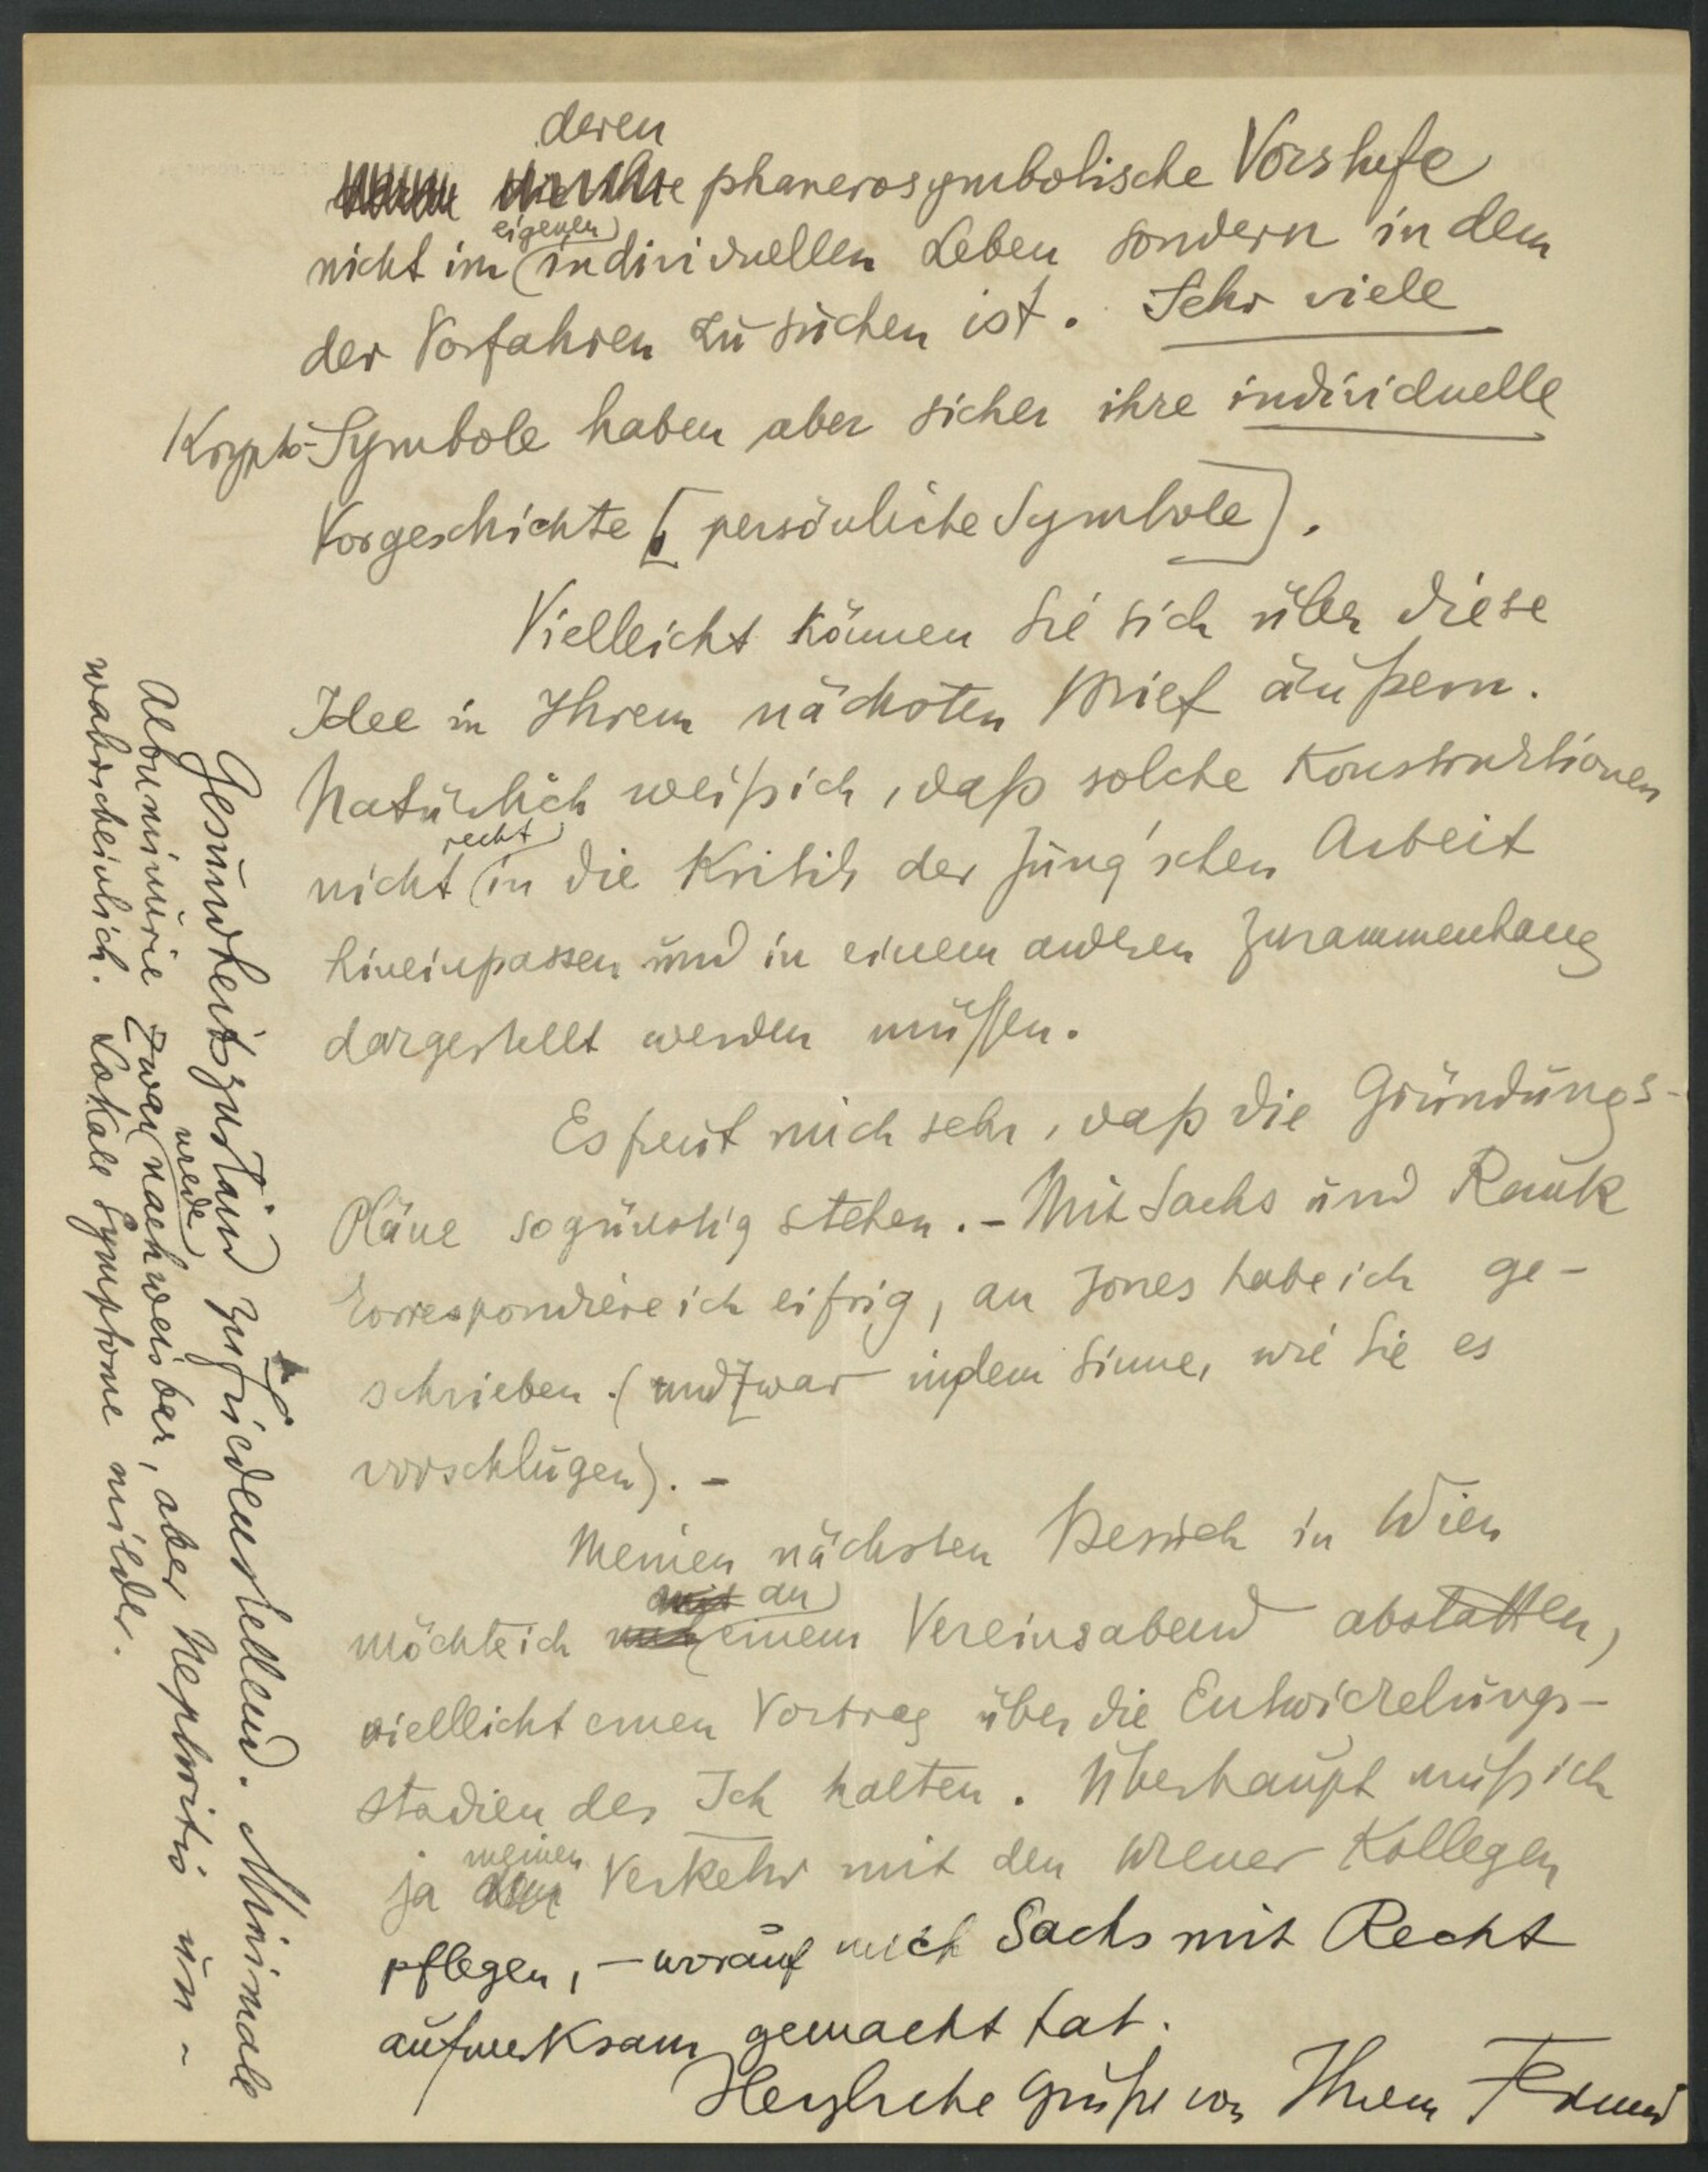 deren
phanerosymbolische Vorstufe
eigenen
nicht im individuellen Leben sondern in dem
der Vorfahren zu suchen ist. Sehr viele
Krypto-Symbole haben aber sicher ihre individuelle
Vorgeschichte [persönliche Symbole].
Vielleicht können Sie sich über diese
Idee in Ihrem nächsten Brief äußern.
Natürlich weiß ich, daß solche Konstruktionen
recht
nicht in die Kritik der Jung'schen Arbeit
hineinpassen und in einem anderen Zusammenhang
dargestellt werden müssen.
Es freut mich sehr, daß die Gründungs-
Pläne so günstig stehen. – Mit Sachs und Rank
korrespondiere ich eifrig, an Jones habe ich ge-
schrieben (und zwar in dem Sinne, wie Sie es
vorschlugen). –
Meinen nächsten Besuch in Wien
an
möchte ich einem Vereinsabend abstatten,
vielleicht einen Vortrag über die Entwickelungs-
stadien des Ich halten. Überhaupt muß ich
meinen
ja Verkehr mit den Wiener Kollegen
pflegen, – worauf mich Sachs mit Recht
aufmerksam gemacht hat.
Herzliche Grüße von Ihrem
Gesundheitszustand zufriedenstellend. Minimale
Albuminurie zwar nachweisbar, aber Nephritis un-
wahrscheinlich. Lokale Symptome milder.